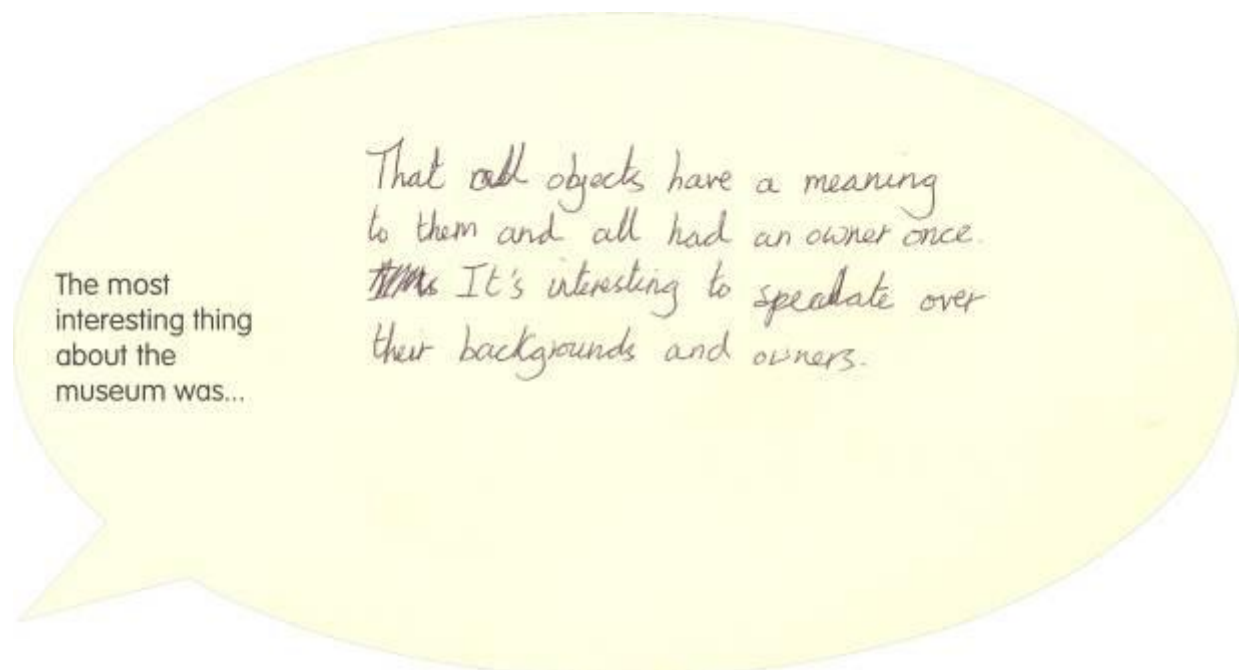 The most
interesting thing
about the
museum was...
That all objects have a meaning
to them and all had an owner once.
It's interesting to speculate over
their backgrounds and owners.